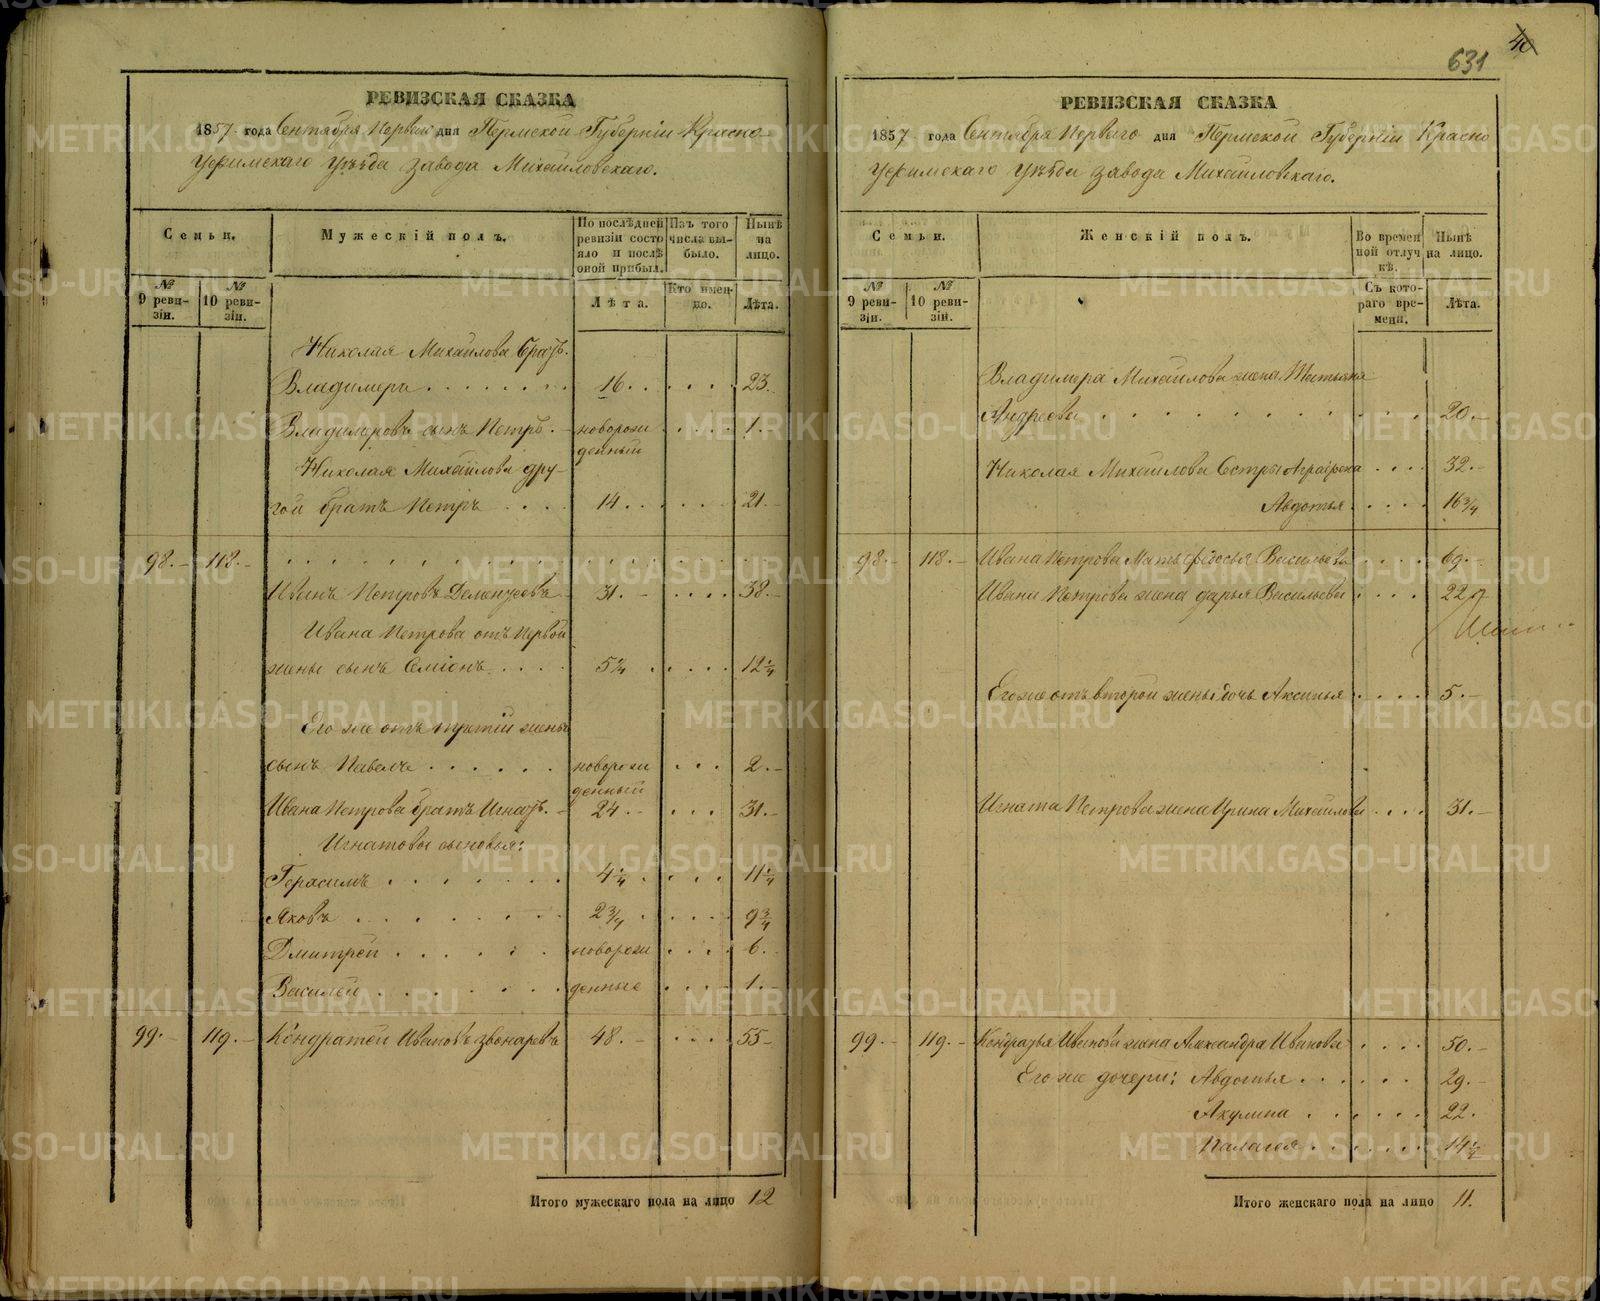 40
631
РЕВИЗСКАЯ СКАЗКА
1857 года Сентября Перваго дня Пермской Губерніи Красно
уфимскаго Уѣзда завода Михайловскаго.
Семьи.
Мужескій полъ.
По послѣдней ревизіи состояло и послѣ оной прибыл.
Изъ того числа выбыло.
Нынѣ на лицо.
№ 9 ревизіи.
№ 10 ревизіи.
Лѣта.
Кто именно.
Лѣта.
Николая Михайлова братъ
Владимеръ 16. 23.
Владимеровъ сынъ Петръ. новорожденный 1.
Николая Михайлова дру-
гой братъ Петръ 14 21.
98. 118.
Иванъ Петровъ 31. 38.
Ивана Петрова отъ первой
жены сынъ Семіонъ 12 1/4
Его же отъ третій жены
сынъ Павелъ новорожденный 2.
Ивана Петрова братъ Игнатъ. 24. 31.
Игнатовы сыновья:
Герасимъ 4 1/4 11 1/4
Яковъ 2 3/4 9 3/4
Дмитрей новорож 6.
Василей денные 1.
99. 119. Кондратей Ивановъ Звонаревъ 48. 55
Итого мужескаго пола на лицо 12
РЕВИЗСКАЯ СКАЗКА
1857 года Сентября Перваго дня Пермской Губерніи Красно
уфимскаго Уѣзда завода Михайловскаго.
Семьи.
Женскій полъ.
Во временной отлучкѣ.
Нынѣ на лицо.
№ 9 ревизіи.
№ 10 ревизіи.
Съ котораго времени.
Лѣта.
Владимера Михайлова жена Татьяна
Андреева 20.
Николая Михайлова Сестры Аграфена 32.
Авдотья 16 3/4
98. 118. Ивана Петрова Мать Федосья Васильева 69.
Ивана Петрова жена Дарья Васильева 22
Его же отъ второй жены дочь Аксинья 5.
Игната Петрова жена Ирина Михайлова 31.
99. 119. Кондратья Иванова жена Александра Иванова 50.
Его же дочери: Авдотья 29.
Акулина 22.
Палагея 14 1/2
Итого женскаго пола на лицо 11.
METRIKI.GASO-URAL.RU